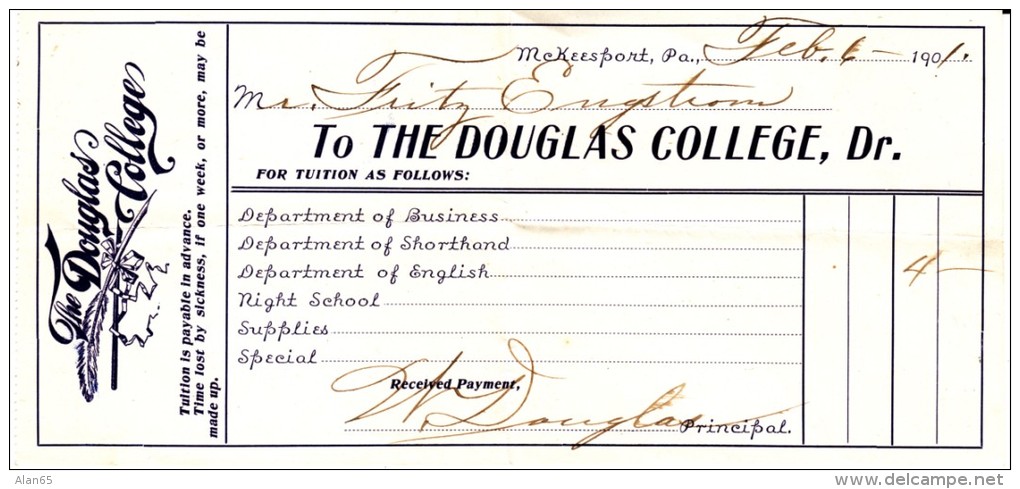 The Douglas College
Tuition is payable in advance.
Time lost by sickness, if one week, or more, may be
made up.
McKeesport, Pa., Feb. 6 — 1901.
Mr. Fritz Engstrom
To THE DOUGLAS COLLEGE, Dr.
FOR TUITION AS FOLLOWS:
Department of Business
Department of Shorthand
Department of English 4 —
Night School
Supplies
Special
Received Payment,
W. Douglas Principal.
Alan65
delcampe.net